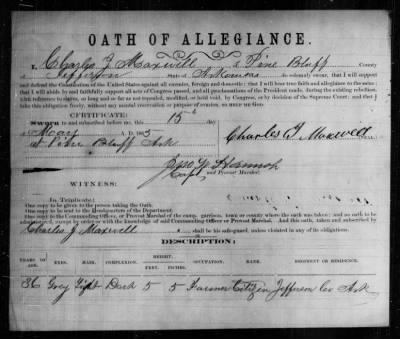 OATH OF ALLEGIANCE.
I, Charles J Maxwell of Pine Bluff County
Jefferson State of Arkansas do solemnly swear, that I will support
and defend the Constitution of the United States against all enemies, foreign and domestic; that I will bear true faith and allegiance
that I will abide by and faithfully support all acts of Congress passed, and all proclamations of the President made, during the existing rebellion,
with reference to slaves, so long and so far as not repealed, modified, or held void, by Congress, or by decision of the Supreme Court; and that I
take this obligation freely, without any mental reservation or purpose of evasion, SO HELP ME GOD:
CERTIFICATE:
Sworn to and subscribed before me this 15 day
A. D. 186
at Pine Bluff Ark
Charles J Maxwell
Capt and Provost Marshal.
WITNESS:
In Triplicate:
One copy to be given to person taking the Oath.
One copy to be sent to the Headquarters of the Department.
One copy to the Commanding Officer, or Provost Marshal of the camp, garrison, town or county where the oath was taken; and no oath to be
administered, except by orders with the knowledge of said Commanding Officer or Provost Marshal. And this oath, taken and subscribed by
Charles J Maxwell shall be his safeguard, unless violated or otherwise ordered.
DESCRIPTION:
YEARS OF AGE. EYES. HAIR. COMPLEXION. HEIGHT: FEET. INCHES. OCCUPATION. RANK. REGIMENT OR RESIDENCE.
36 Grey Light Dark 5 5 Farmer Citizen Jefferson Co Ark